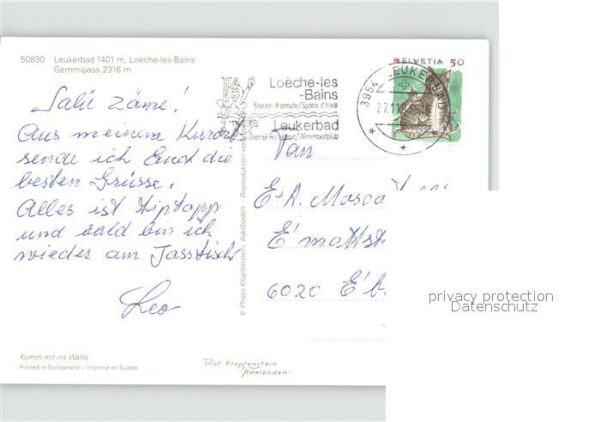 50830 Leukerbad 1401 m, Loèche-les-Bains
Gemmipass 2316 m
Loèche-les
-Bains
Station thermale/Sports d'hiver
Leukerbad
HELVETIA 50
3954 LEUKERBAD
Salü zäme!
Aus meinem Kurort
sende ich Euch die
besten Grüsse.
Alles ist tiptopp
und bald bin ich
wieder am Jasstisch
Leo
Fam
E+A. Mosca
E'mattst
6020 E'b
© Photo Klopfenstein, Adelboden - Reproduktion
Komm mit ins Wallis
Printed in Switzerland – Imprimé en Suisse
Phot Klopfenstein
Adelboden
privacy protection
Datenschutz